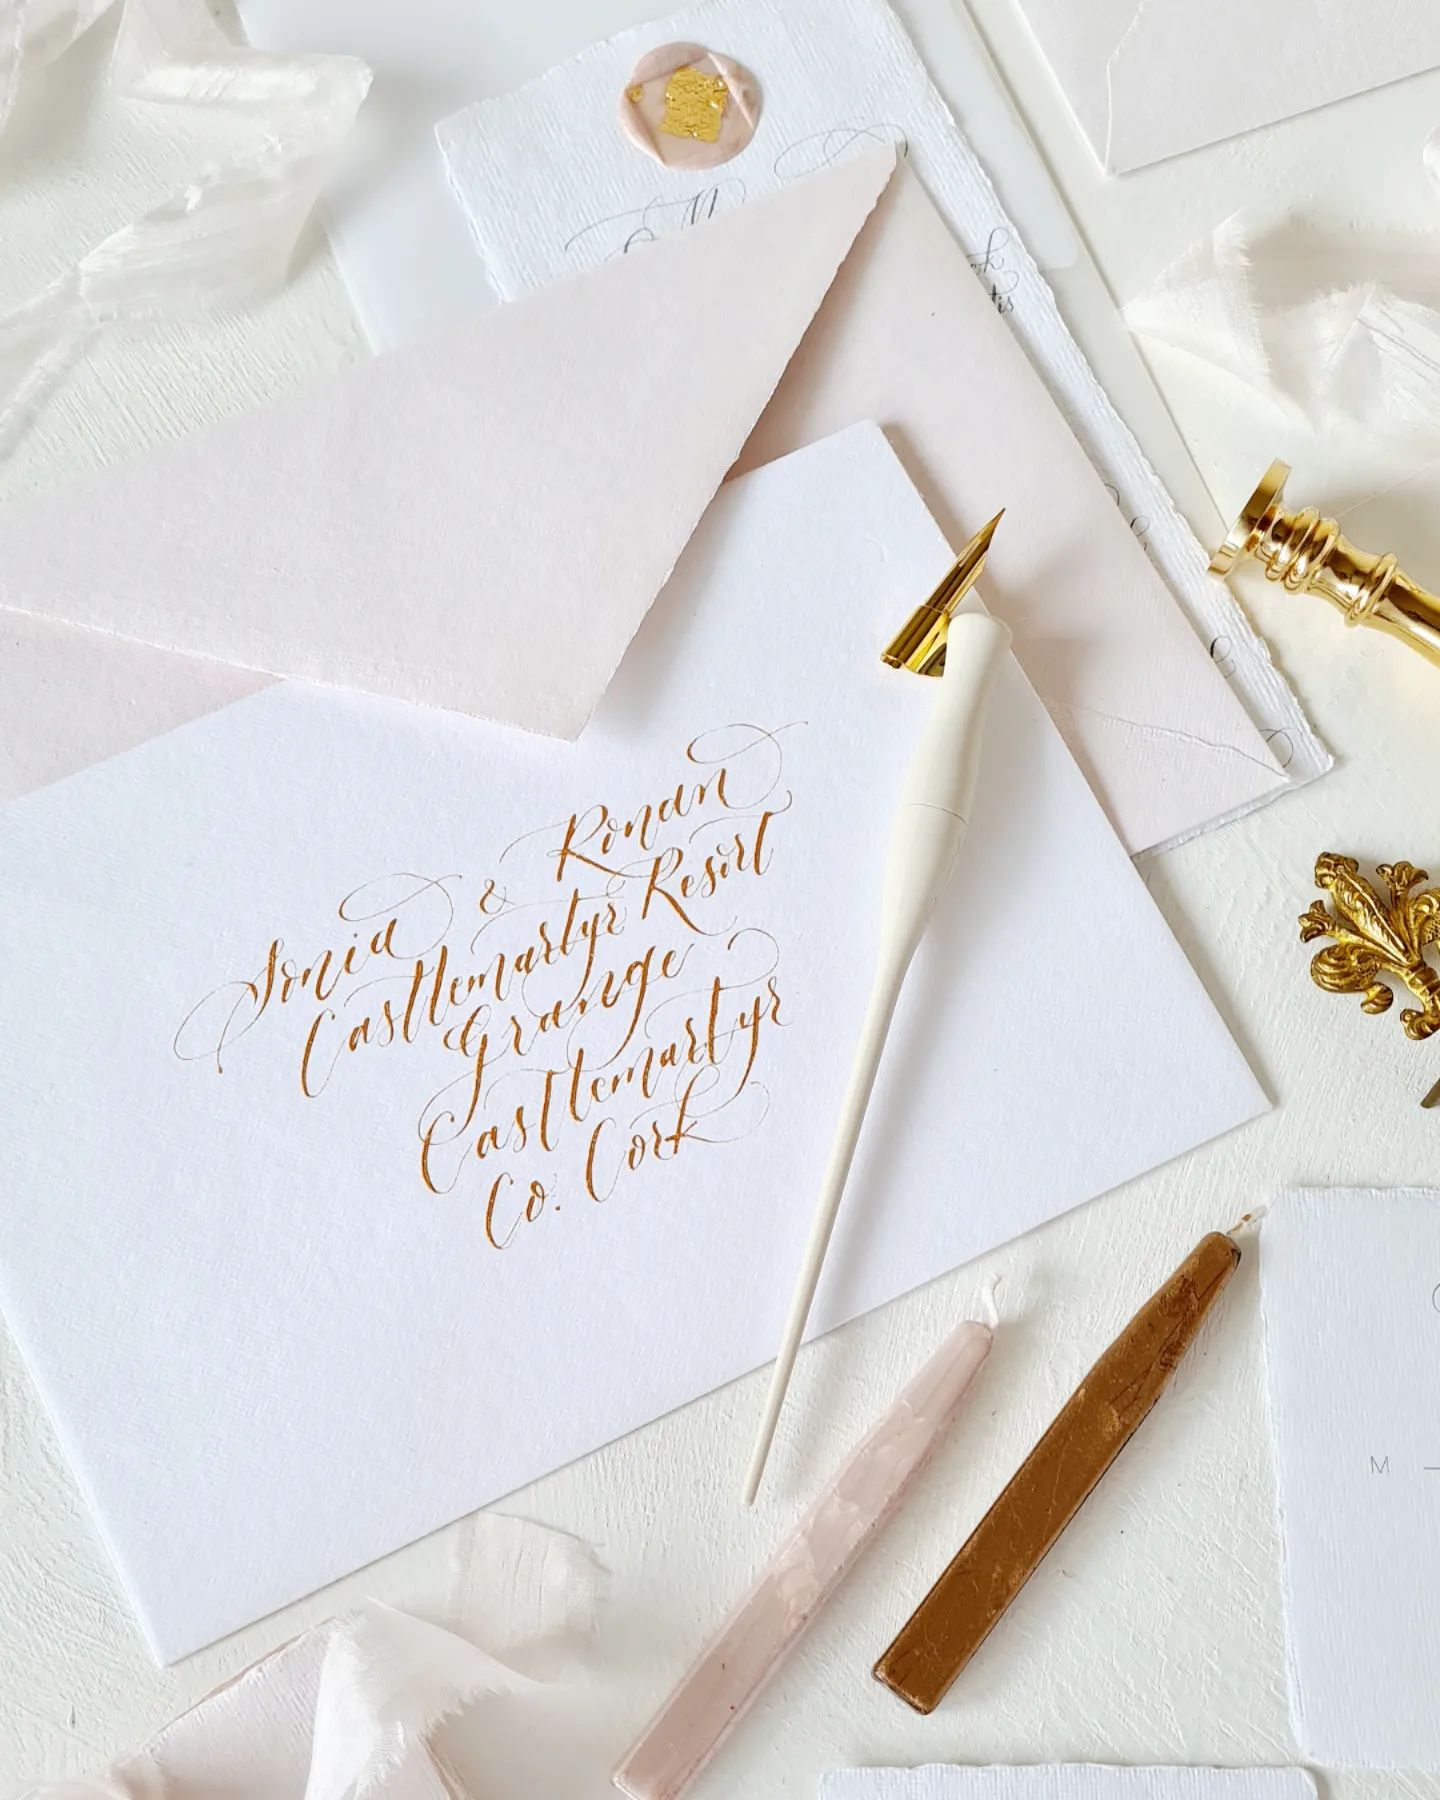 Sonia & Ronan
Castlemartyr Resort
Grange
Castlemartyr
Co. Cork
M